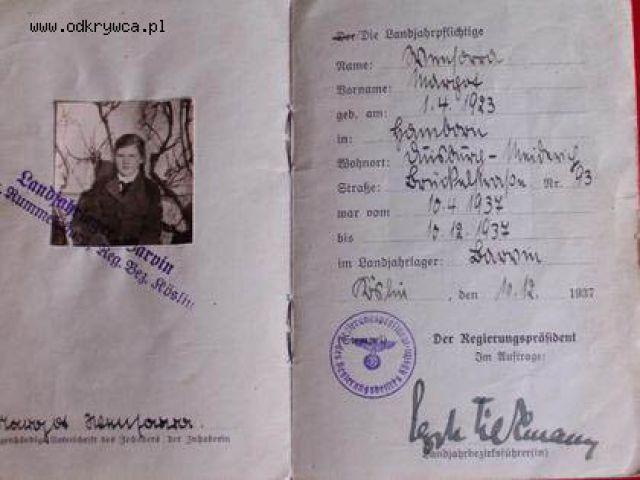 www.odkrywca.pl
Landjahrlager Barvin
Kr. Rummelsburg, Reg. Bez. Köslin
Margot
Eigenhändige Unterschrift des Inhabers, der Inhaberin
Der/Die Landjahrpflichtige
Name:
Vorname: Margot
geb. am: 1.4.1923
in: Hamborn
Wohnort: Duisburg-Meiderich
Straße: Brückelstraße Nr. 93
war vom 10.4.1937
bis 10.12.1937
im Landjahrlager: Barvin
Köslin, den 10.12. 1937
Der Regierungspräsident
Im Auftrage:
Landjahrbezirksführer(in)